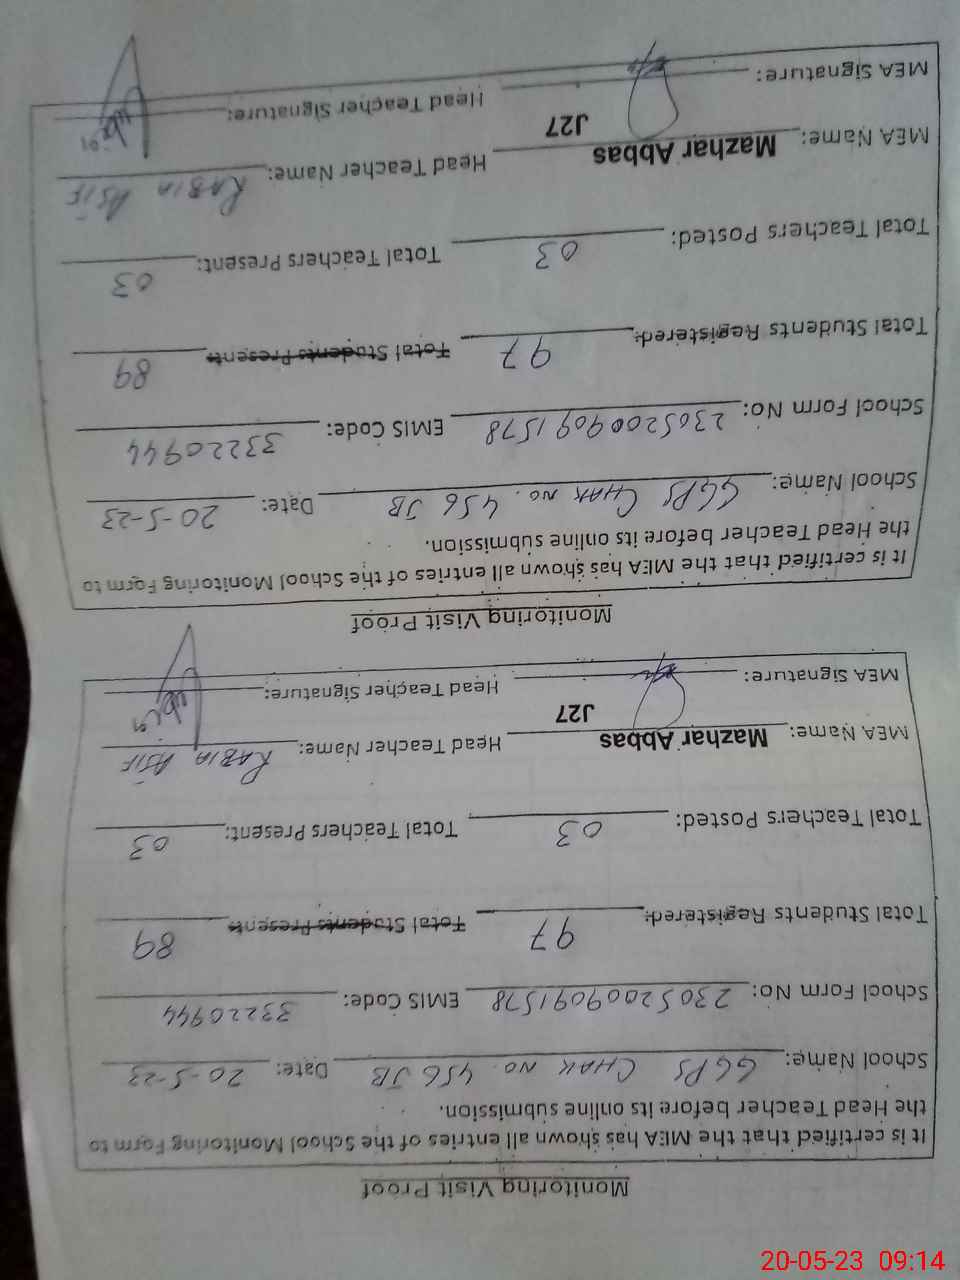 Monitoring Visit Proof
It is certified that the MEA has shown all entries of the School Monitoring Form to
the Head Teacher before its online submission.
School Name: GGPS CHAK NO. 456 JB Date: 20-5-23
School Form No: 23052009091578 EMIS Code: 33220944
Total Students Registered: 97 Total Students Present: 89
Total Teachers Posted: 03 Total Teachers Present: 03
MEA Name: Mazhar Abbas Head Teacher Name: RABIA ASIF
J27
MEA Signature: Head Teacher Signature:
Monitoring Visit Proof
It is certified that the MEA has shown all entries of the School Monitoring Form to
the Head Teacher before its online submission.
School Name: GGPS CHAK NO. 456 JB Date: 20-5-23
School Form No: 23052009091578 EMIS Code: 33220944
Total Students Registered: 97 Total Students Present: 89
Total Teachers Posted: 03 Total Teachers Present: 03
MEA Name: Mazhar Abbas Head Teacher Name: RABIA ASIF
J27
MEA Signature: Head Teacher Signature:
20-05-23 09:14